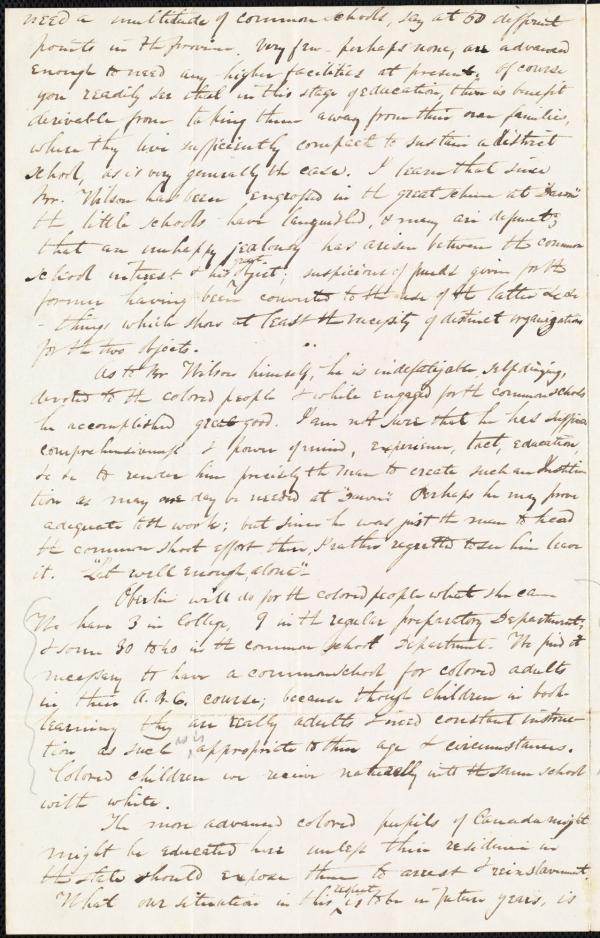 need a multitude of common schools, say at 50 different
points in the province. Very few - perhaps none, are advanced
enough to need any higher facilities at present. Of course
you readily see that in this stage of education, there is benefit
derivable from taking them away from their own families,
where they live sufficiently compact to sustain a district
school, as is very generally the case. I learn that since
Bro. Wilson has been engrossed in the great scheme at "Dawn"
the little schools have languished, & many are defunct;
that an unhappy jealousy has arisen between the common
school interest & his great object; suspicions of funds given for the
former having been converted to the use of the latter &c &c
- things which show at least the necessity of distinct organizations
for the two objects.
As to Bro Wilson himself, he is indefatigable, self denying,
devoted to the colored people & while engaged for the common schools
he accomplished great good. I am not sure that he has sufficient
comprehensiveness & power of mind, experience, tact, education
&c &c to render him precisely the man to create such an Institu-
tion as may one day be needed at "Dawn" Perhaps he may prove
adequate to the work; but since he was just the man to head
the common school effort there, I rather regretted to see him leave
it. "Let well enough alone" -
Oberlin will do for the colored people what she can
We have 3 in College, 9 in the regular preparatory Department,
& some 30 to 40 in the common school Department. We find it
necessary to have a common school for colored adults
in their A.B.C. course; because though children in book
learning they are really adults & need constant instruc-
tion as such, appropriate to their age & circumstances.
Colored children we receive naturally into the same school
with white.
The more advanced colored pupils of Canada might
might be educated here unless their residence in
the state should expose them to arrest & reinslavement.
What our situation in this respect is to be in future years, is